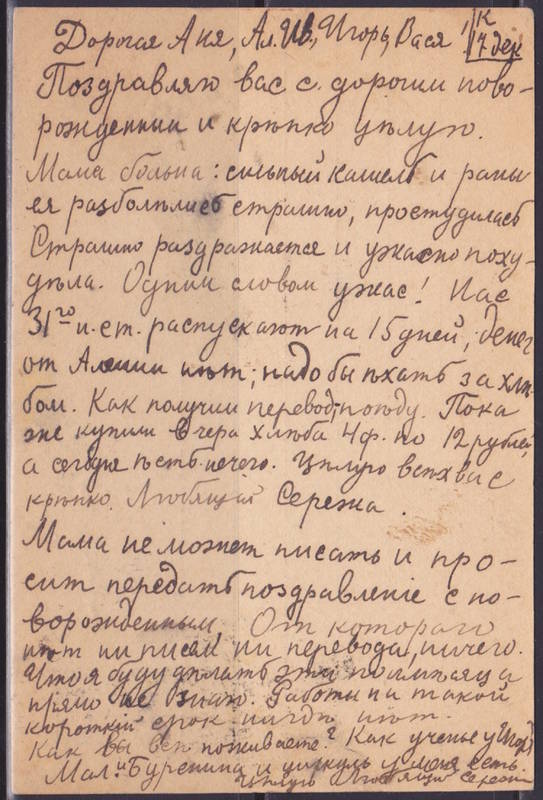 Дорогая Аня, Ал. Ив., Игорь, Вася!
К
17 дек
Поздравляю вас с дорогим ново-
рожденным и крѣпко цѣлую.
Мама больна: сильный кашель и раны
ея разболѣлись страшно, простудилась
Страшно раздражается и ужасно поху-
дѣла. Одним словом ужас! Нас
31го н. ст. распускают на 15 дней, денег
от нѣт; надо бы ѣхать за хлѣ-
бом. Как получим перевод, поѣду. Пока
же купили вчера хлѣба 4 ф. по 12 рублей,
а сегодня ѣсть нечего. Цѣлую всѣх вас
крѣпко. Любящій Сережа.
Мама не может писать и про-
сит передать поздравленіе с но-
ворожденным. От котораго
нѣт ни писем, ни перевода, ничего.
Что я буду дѣлать эти полмѣсяца
прямо не знаю. Работы на такой
короткій срок нигдѣ нѣт.
Как вы всѣ поживаете? Как ученье у
Мал. и Буренина и у меня есть.
Цѣлую Любящій Сережа